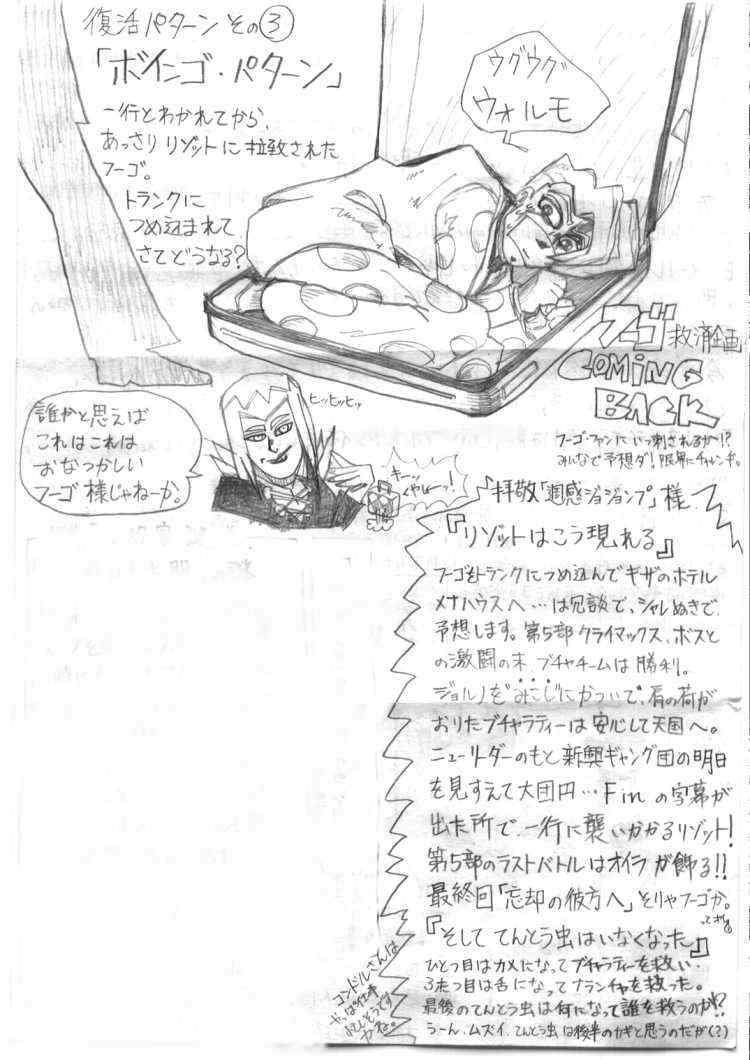 復活パターン その③
「ボインゴ・パターン」
一行とわかれてから、
あっさりリゾットに拉致された
フーゴ。
トランクに
つめ込まれて
さてどうなる?
ウグウグ
ウォルモ
フーゴ救済企画
COMING
BACK
フーゴ・ファンに
みんなで予想ダ! 限界にチャレンヂ。
誰かと思えば
これはこれは
おなつかしい
フーゴ様じゃねーか。
ヒッヒッヒッ
キーッ
くやしーっ!
「拝敬「週感ジョジョンプ」様
『リゾットはこう現れる』
フーゴをトランクにつめ込んでギザのホテル
メナハウスへ…は冗談で、シャレぬきで
予想します。第5部クライマックス、ボスと
の激闘の末、ブチャチームは勝利。
ジョルノを"みこし"にかついで、肩の荷が
おりたブチャラティーは安心して天国へ。
ニューリーダーのもと新興ギャング団の明日
を見すえて大団円…Finの字幕が
出た所で、一行に襲いかかるリゾット!
第5部のラストバトルはオイラが飾る!!
最終回「忘却の彼方へ」そりゃフーゴか。
『そしててんとう虫はいなくなった』
ひとつ目はカメになってブチャラティーを救い、
ふたつ目は舌になってナランチャを救った。
最後のてんとう虫は何になって誰を救うのか!?
うーん、ムズイ。てんとう虫は後半のカギと思うのだが(?)
コンドルさんは